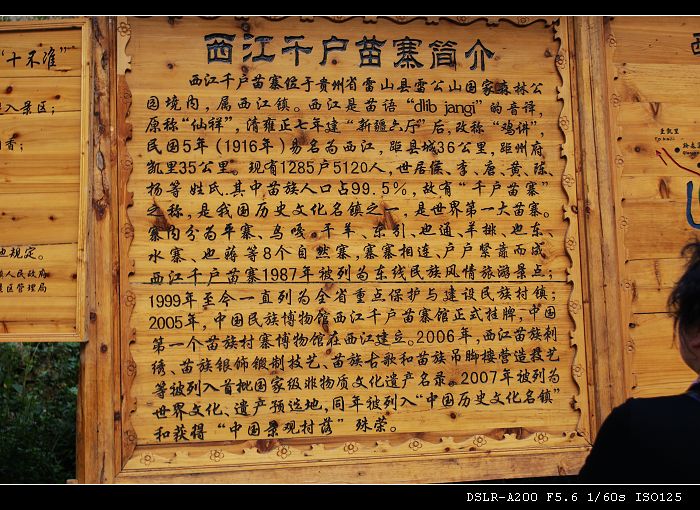 西江千户苗寨简介
西江千户苗寨位于贵州省雷山县雷公山国家森林公
园境内，属西江镇。西江是苗语“dlib jangi”的音译，
原称“仙祥”，清雍正七年建“新疆六厅”后，改称“鸡讲”，
民国5年（1916年）易名为西江，距县城36公里，距州府
凯里35公里。现有1285户5120人，世居侯、李、唐、黄、陈、
杨等姓氏，其中苗族人口占99.5%，故有“千户苗寨”
之称，是我国历史文化名镇之一，是世界第一大苗寨。
寨内分为平寨、乌嘎、干羊、东引、也通、羊排、也东、
水寨、也薅等8个自然寨，寨寨相连、户户紧靠而成
西江千户苗寨1987年被列为东线民族风情旅游景点；
1999年至今一直列为全省重点保护与建设民族村镇；
2005年，中国民族博物馆西江千户苗寨馆正式挂牌，中国
第一个苗族村寨博物馆在西江建立。2006年，西江苗族刺
绣、苗族银饰锻制技艺、苗族古歌和苗族吊脚楼营造技艺
等被列入首批国家级非物质文化遗产名录。2007年被列为
世界文化、遗产预选地，同年被列入“中国历史文化名镇”
和获得“中国景观村落”殊荣。
“十不准”
入景区；
者；
规定。
镇人民政府
景区管理局
至凯里
DSLR-A200 F5.6 1/60s ISO125